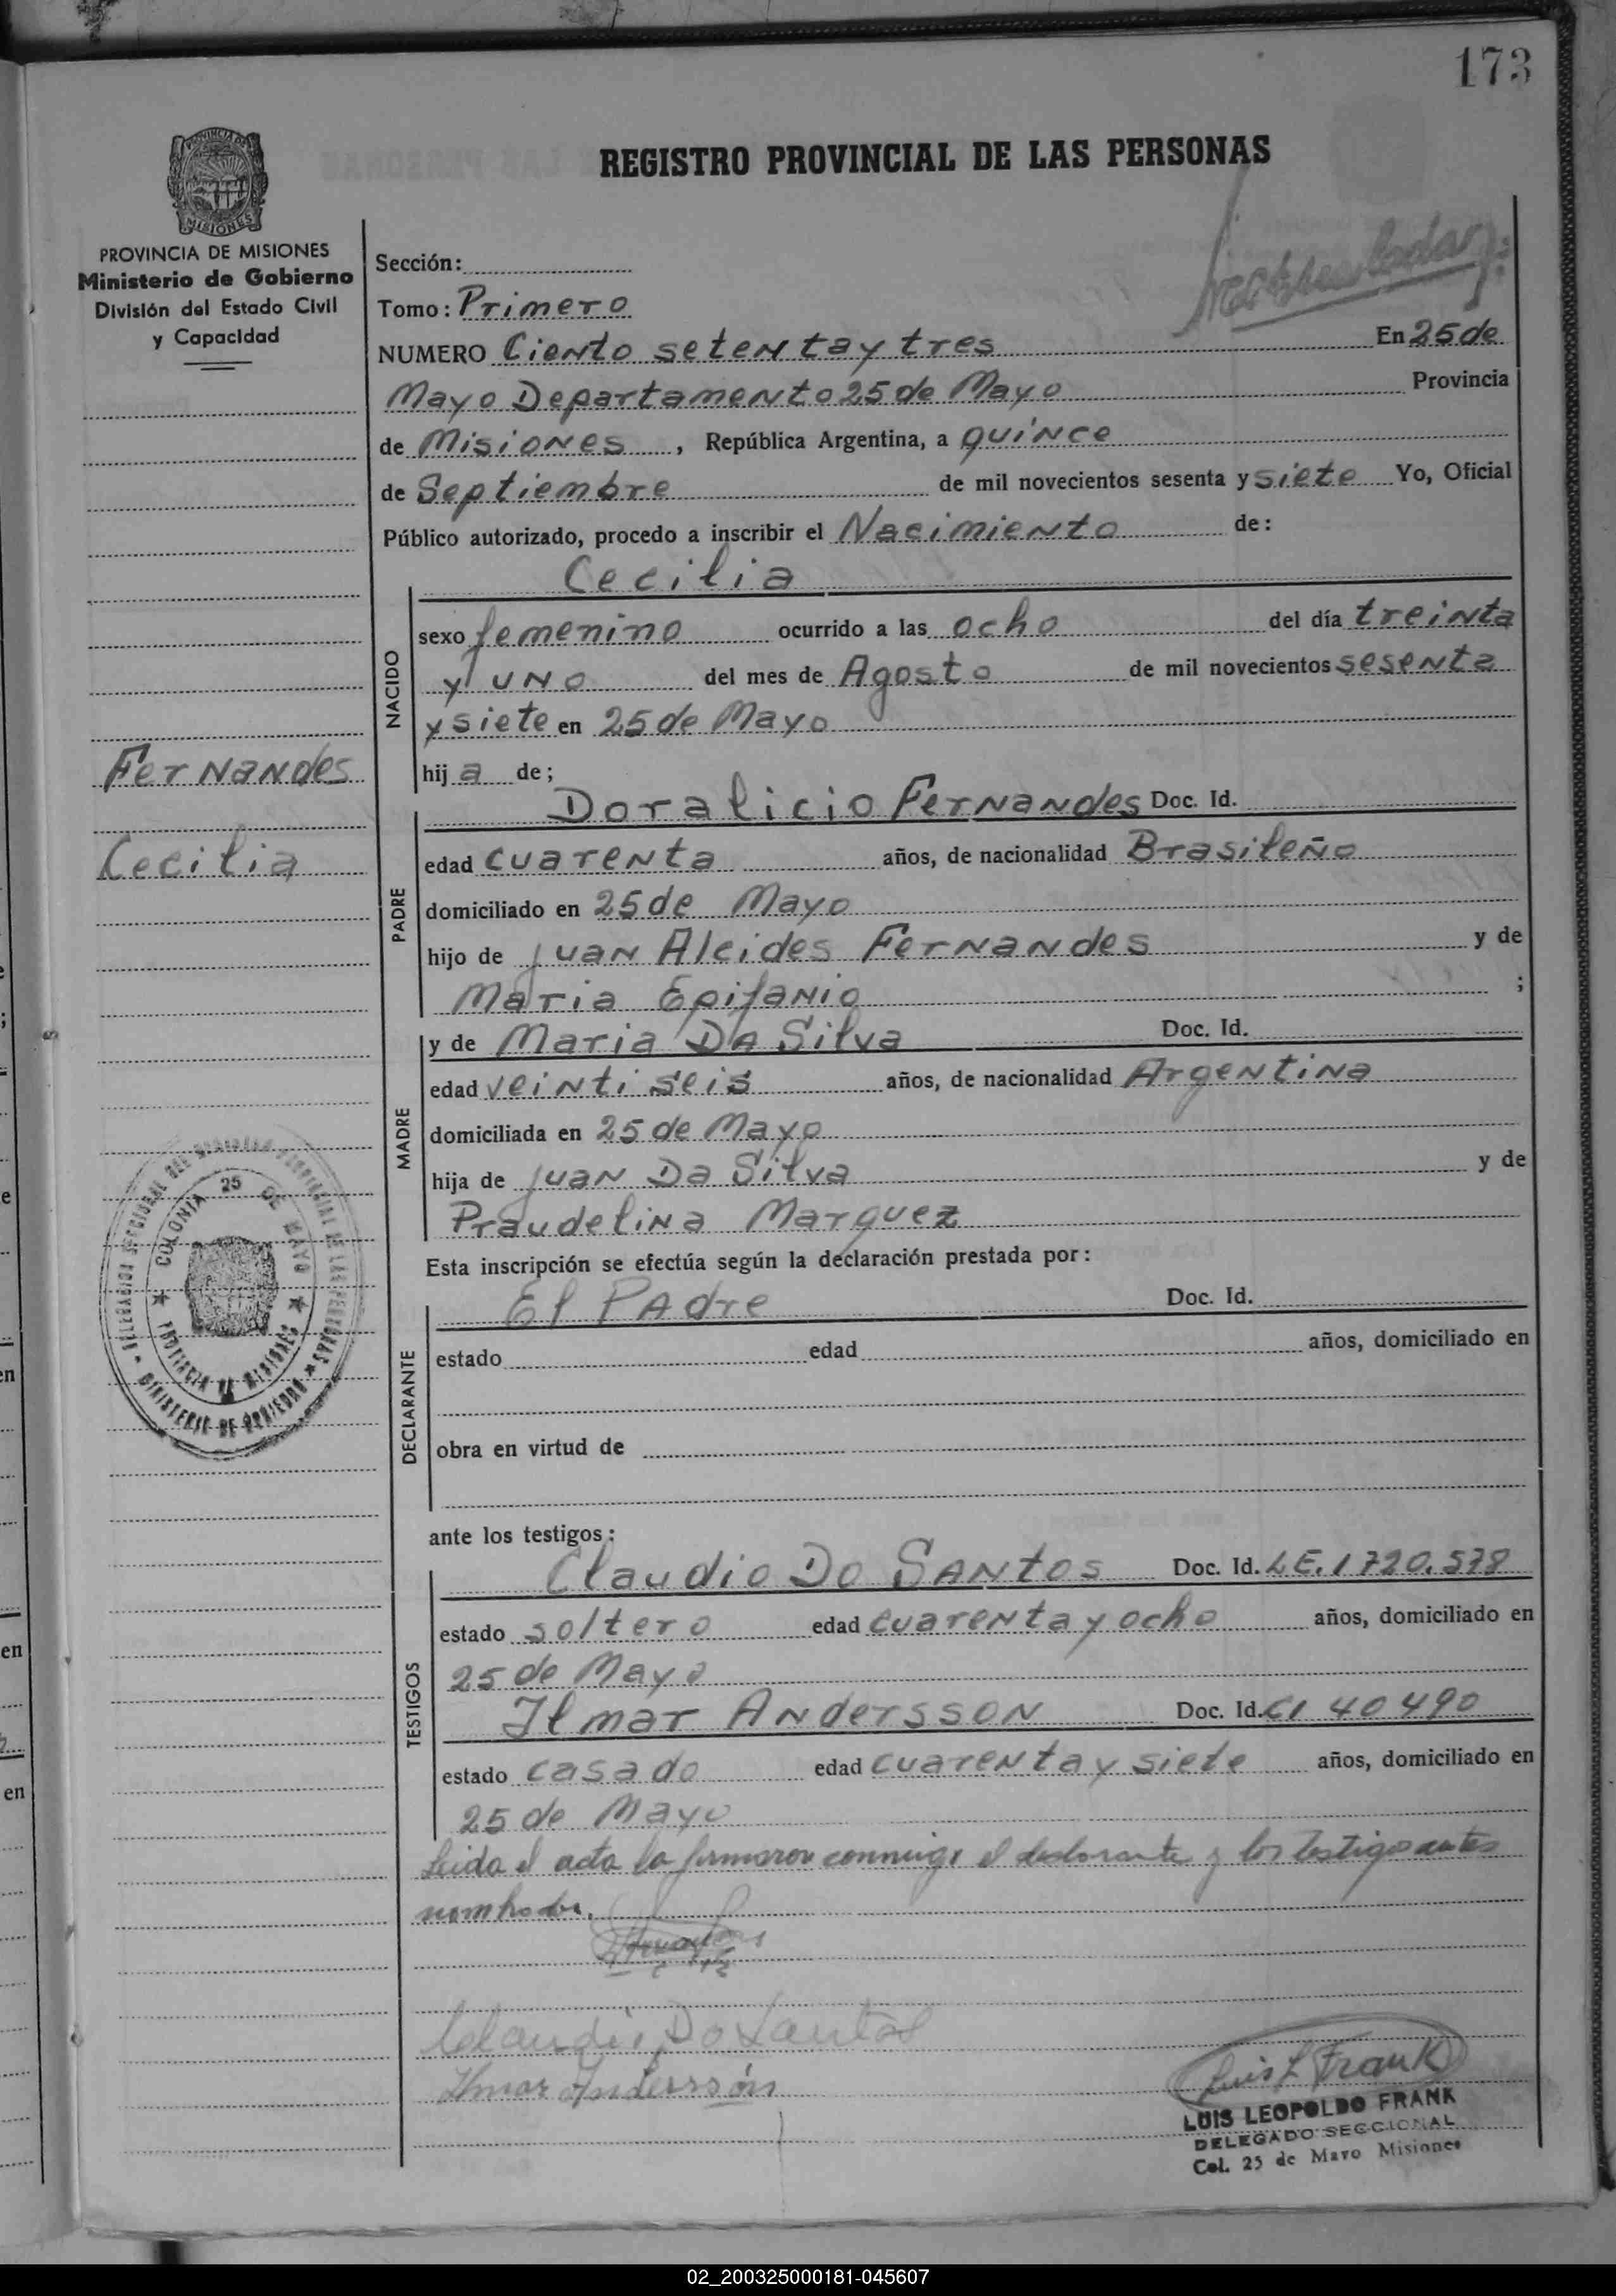 173
REGISTRO PROVINCIAL DE LAS PERSONAS
PROVINCIA DE
MISIONES
PROVINCIA DE MISIONES
Ministerio de Gobierno
División del Estado Civil
y Capacidad
Fernandes
Cecilia
Sección:
Tomo: Primero
NUMERO Ciento setenta y tres En 25 de
Mayo Departamento 25 de Mayo Provincia
de Misiones, República Argentina, a quince
de Septiembre de mil novecientos sesenta y siete Yo, Oficial
Público autorizado, procedo a inscribir el Nacimiento de:
Cecilia
NACIDO
sexo femenino ocurrido a las ocho del día treinta
y uno del mes de Agosto de mil novecientos sesenta
y siete en 25 de Mayo
hija de;
PADRE
Doralicio Fernandes Doc. Id.
edad cuarenta años, de nacionalidad Brasileño
domiciliado en 25 de Mayo
hijo de Juan Alcides Fernandes y de
Maria Epifanio ;
MADRE
y de Maria Da Silva Doc. Id.
edad veinti seis años, de nacionalidad Argentina
domiciliada en 25 de Mayo
hija de Juan Da Silva y de
Praudelina Marquez
Esta inscripción se efectúa según la declaración prestada por:
DECLARANTE
El Padre Doc. Id.
estado edad años, domiciliado en
obra en virtud de
ante los testigos:
TESTIGOS
Claudio Do Santos Doc. Id. LE. 1720.578
estado soltero edad cuarenta y ocho años, domiciliado en
25 de Mayo
Ilmar Andersson Doc. Id. CI 40490
estado casado edad cuarenta y siete años, domiciliado en
25 de Mayo
Leida el acta la firmaron conmigo el declarante y los testigos antes
nombrados.
Claudio Do Santos
Ilmar Anderssón
Luis L Frank
LUIS LEOPOLDO FRANK
DELEGADO SECCIONAL
Col. 25 de Mayo Misiones
COLONIA 25 DE MAYO
PROVINCIA DE MISIONES
MINISTERIO DE GOBIERNO
02_200325000181-045607